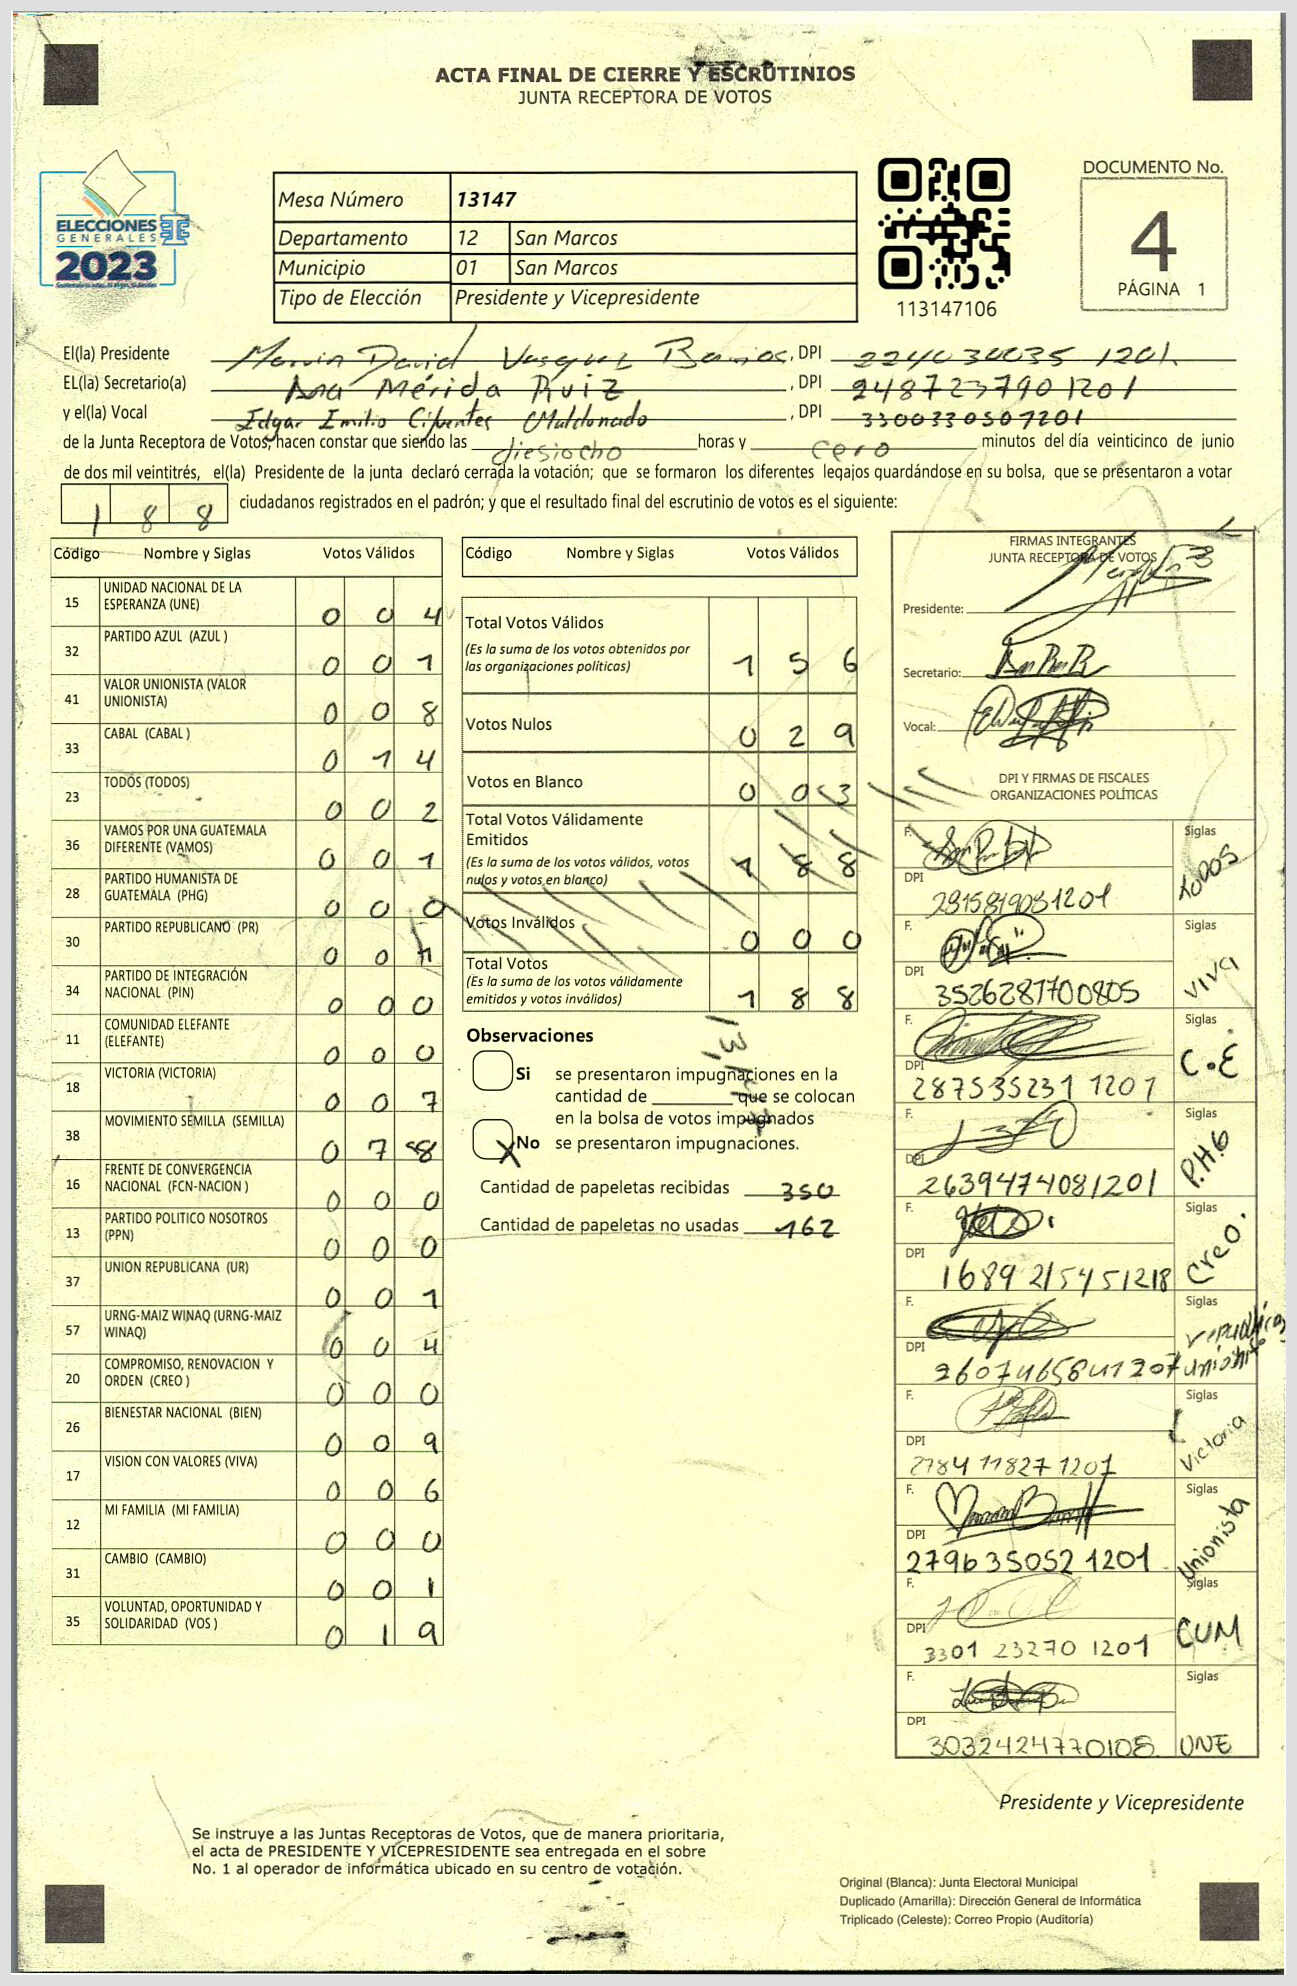 ACTA FINAL DE CIERRE Y ESCRUTINIOS
JUNTA RECEPTORA DE VOTOS
ELECCIONES
GENERALES
2023
Mesa Número 13147
Departamento 12 San Marcos
Municipio 01 San Marcos
Tipo de Elección Presidente y Vicepresidente
113147106
DOCUMENTO No.
4
PÁGINA 1
El(la) Presidente Marvin David Vasquez Barrios, DPI 224030035 1201
EL(la) Secretario(a) Ana Mérida Ruiz, DPI 248723790 1201
y el(la) Vocal Edgar Emilio Cifuentes Maldonado, DPI 3300330507201
de la Junta Receptora de Votos, hacen constar que siendo las diesiocho horas y cero minutos del día veinticinco de junio
de dos mil veintitrés, el(la) Presidente de la junta declaró cerrada la votación; que se formaron los diferentes legajos guardándose en su bolsa, que se presentaron a votar
188 ciudadanos registrados en el padrón; y que el resultado final del escrutinio de votos es el siguiente:
Código Nombre y Siglas Votos Válidos
15 UNIDAD NACIONAL DE LA ESPERANZA (UNE) 0 0 4
32 PARTIDO AZUL (AZUL ) 0 0 1
41 VALOR UNIONISTA (VALOR UNIONISTA) 0 0 8
33 CABAL (CABAL ) 0 1 4
23 TODOS (TODOS) 0 0 2
36 VAMOS POR UNA GUATEMALA DIFERENTE (VAMOS) 0 0 1
28 PARTIDO HUMANISTA DE GUATEMALA (PHG) 0 0 0
30 PARTIDO REPUBLICANO (PR) 0 0 1
34 PARTIDO DE INTEGRACIÓN NACIONAL (PIN) 0 0 0
11 COMUNIDAD ELEFANTE (ELEFANTE) 0 0 0
18 VICTORIA (VICTORIA) 0 0 7
38 MOVIMIENTO SEMILLA (SEMILLA) 0 7 8
16 FRENTE DE CONVERGENCIA NACIONAL (FCN-NACION ) 0 0 0
13 PARTIDO POLITICO NOSOTROS (PPN) 0 0 0
37 UNION REPUBLICANA (UR) 0 0 1
57 URNG-MAIZ WINAQ (URNG-MAIZ WINAQ) 0 0 4
20 COMPROMISO, RENOVACION Y ORDEN (CREO ) 0 0 0
26 BIENESTAR NACIONAL (BIEN) 0 0 9
17 VISION CON VALORES (VIVA) 0 0 6
12 MI FAMILIA (MI FAMILIA) 0 0 0
31 CAMBIO (CAMBIO) 0 0 1
35 VOLUNTAD, OPORTUNIDAD Y SOLIDARIDAD (VOS ) 0 1 9
Código Nombre y Siglas Votos Válidos
Total Votos Válidos 1 5 6
(Es la suma de los votos obtenidos por las organizaciones políticas)
Votos Nulos 0 2 9
Votos en Blanco 0 0 3
Total Votos Válidamente Emitidos 1 8 8
(Es la suma de los votos válidos, votos nulos y votos en blanco)
Votos Inválidos 0 0 0
Total Votos 1 8 8
(Es la suma de los votos válidamente emitidos y votos inválidos)
13,147
Observaciones
Si se presentaron impugnaciones en la
cantidad de ________ que se colocan
en la bolsa de votos impugnados
X No se presentaron impugnaciones.
Cantidad de papeletas recibidas 350
Cantidad de papeletas no usadas 162
FIRMAS INTEGRANTES
JUNTA RECEPTORA DE VOTOS
Presidente:
Secretario:
Vocal:
DPI Y FIRMAS DE FISCALES
ORGANIZACIONES POLÍTICAS
F. Siglas TODOS
DPI 281581908 1201
F. Siglas VIVA
DPI 3526281700805
F. Siglas C.E
DPI 287535231 1201
F. Siglas P.H.G
DPI 2639474081201
F. Siglas Creo.
DPI 1689 215451218
F. Siglas
DPI 2607465841207
F. Siglas Victoria
DPI 2784 11827 1207
F. Siglas Unionista
DPI 279635052 1201
F. Siglas CUM
DPI 3301 23270 1201
F. Siglas UNE
DPI 3032424770108
Presidente y Vicepresidente
Se instruye a las Juntas Receptoras de Votos, que de manera prioritaria,
el acta de PRESIDENTE Y VICEPRESIDENTE sea entregada en el sobre
No. 1 al operador de informática ubicado en su centro de votación.
Original (Blanca): Junta Electoral Municipal
Duplicado (Amarilla): Dirección General de Informática
Triplicado (Celeste): Correo Propio (Auditoría)